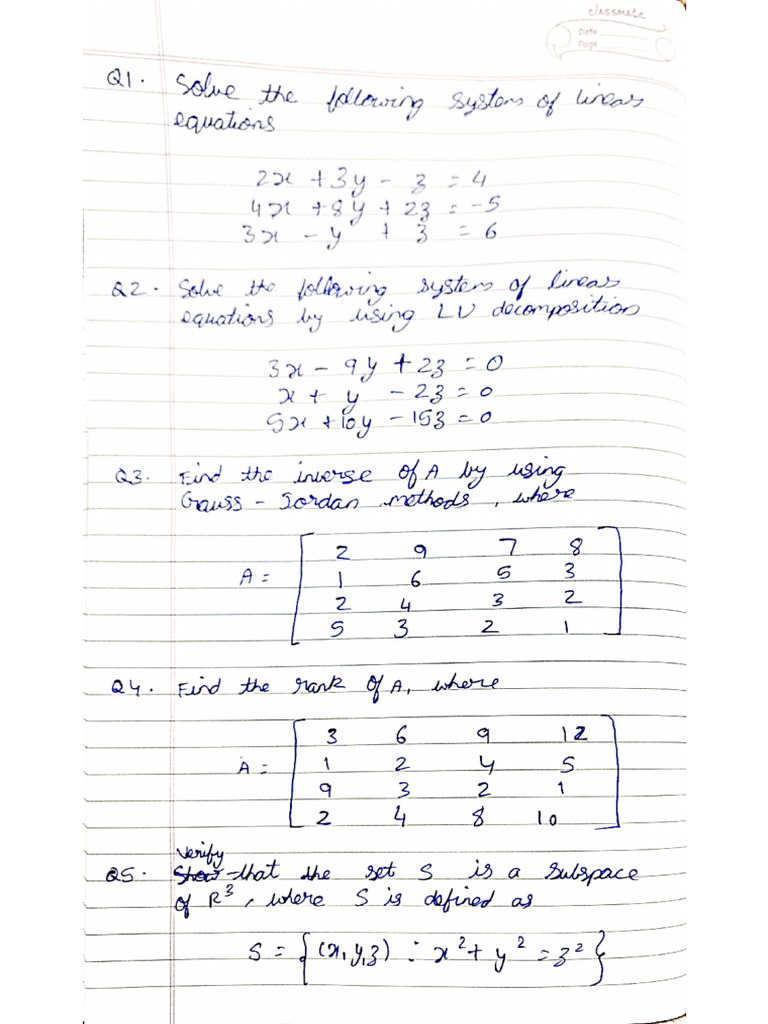 classmate
Date
Page
Q1. Solve the following system of linear
equations
2x + 3y - z = 4
4x + 8y + 2z = -5
3x - y + z = 6
Q2. Solve the following system of linear
equations by using LU decomposition
3x - 9y + 2z = 0
x + y - 2z = 0
5x + 10y - 15z = 0
Q3. Find the inverse of A by using
Gauss - Jordan methods, where
2 9 7 8
A = 1 6 5 3
2 4 3 2
5 3 2 1
Q4. Find the rank of A, where
3 6 9 12
A = 1 2 4 5
9 3 2 1
2 4 8 10
Verify
Q5. Show that the set S is a subspace
of R³, where S is defined as
S = {(x, y, z) : x² + y² = z²}